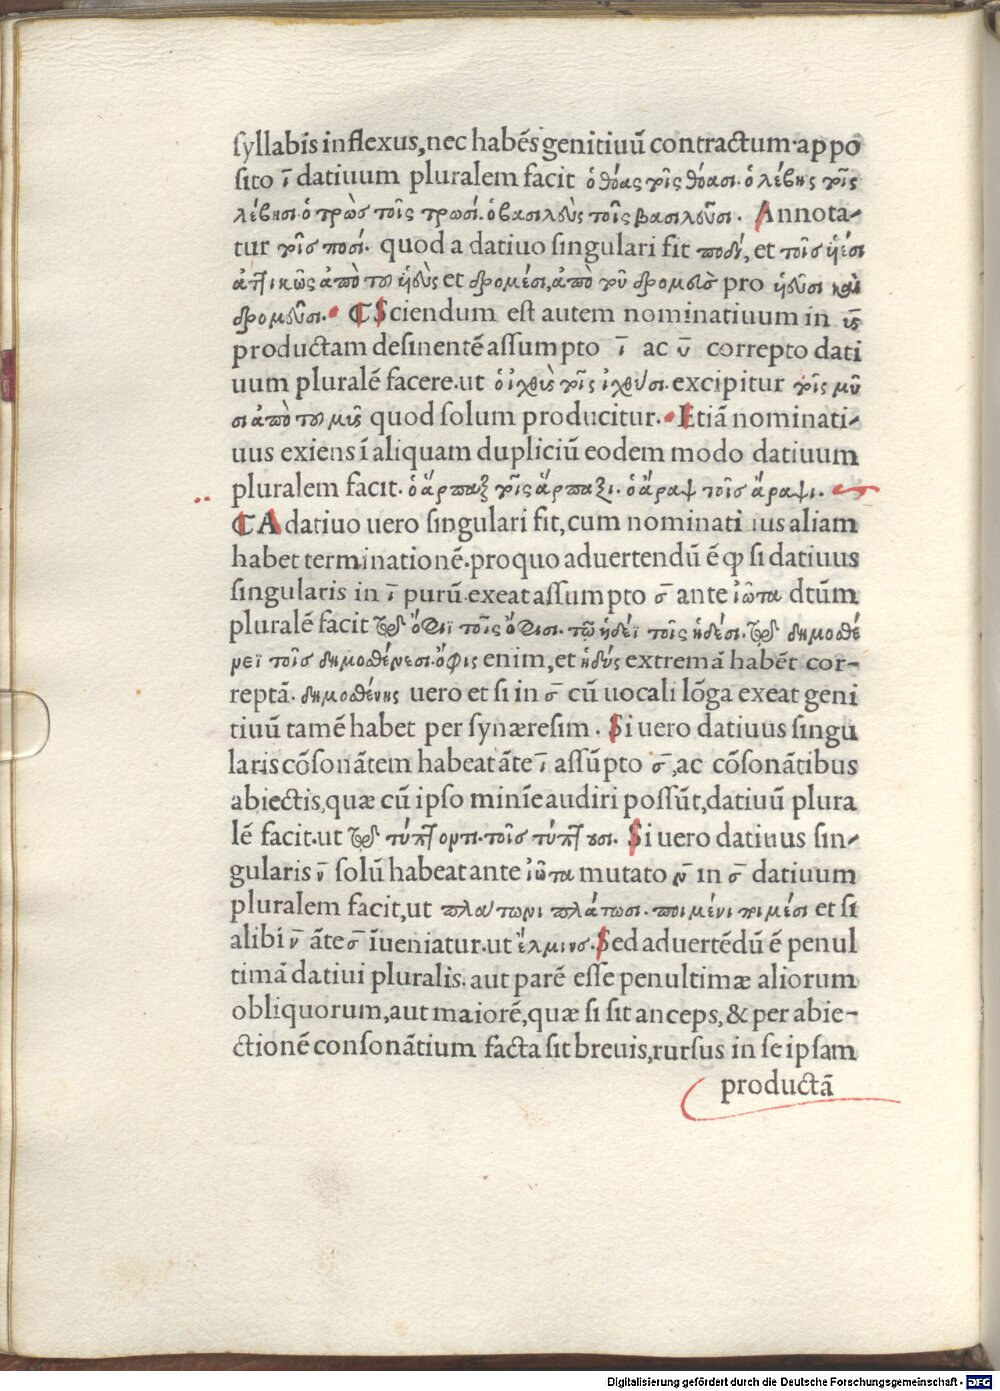 syllabis inflexus, nec habēs genitiuū contractum·appo
sito ῑ datiuum pluralem facit ὁ θόας τοῖς θόασι·ὁ λέβης τοῖς
λέβησι·ὁ τρὼς τοῖς τρωσί·ὁ βασιλεὺς τοῖς βασιλεῦσι· Annota-
tur τοῖς ποσί· quod a datiuo singulari fit ποδί, et τοῖς ἡδέσι
ἀττικῶς ἀπὸ τοῦ ἡδὺς et δρομέσι, ἀπὸ τοῦ δρομεὺς pro ἡδῦσι καὶ
δρομεῦσι. ¶ Sciendum est autem nominatiuum in ῡς
productam desinentē assumpto ῑ ac ῡ correpto dati
uum pluralē facere.ut ὁ ἰχθὺς τοῖς ἰχθύσι· excipitur τοῖς μῦ
σι ἀπὸ τοῦ μῦς quod solum producitur. Etiā nominati-
uus exiens ī aliquam dupliciū eodem modo datiuum
pluralem facit·ὁ ἅρπαξ τοῖς ἅρπαξι·ὁ ἄραψ τοῖς ἄραψι.
¶ A datiuo uero singulari fit, cum nominatiuus aliam
habet terminationē.pro quo aduertendū ē ꝙ si datiuus
singularis in ῑ purū.exeat assumpto σ̄ ante ἰῶτα dtūm
pluralē facit ὄφιϊ τοῖς ὄφισι· τῷ ἡδέϊ τοῖς ἡδέσι· δημοσθέ
νεϊ τοῖς δημοσθένεσι·ὄφις enim, et ἡδύς extremā habēt cor-
reptā· δημοσθένης uero et si in σ̄ cū uocali lōga exeat geni
tiuū tamē habet per synæresim. Si uero datiuus singu
laris cōsonātem habeat āte ῑ assūpto σ̄, ac cōsonātibus
abiectis, quæ cū ipso minīe audiri possūt, datiuū plura
lē facit.ut τύπτοντι·τοῖς τύπτουσι. Si uero datiuus sin-
gularis ν̄ solū habeat ante ἰῶτα mutato ν̄ in σ̄ datiuum
pluralem facit, ut πλάτωνι πλάτωσι·ποιμένι ποιμέσι et si
alibi ν̄ āte σ̄ īueniatur.ut ἕλμινς. Sed aduertēdū ē penul
timā datiui pluralis. aut parē esse penultimæ aliorum
obliquorum, aut maiorē, quæ si sit anceps, & per abie-
ctionē consonātium facta sit breuis, rursus in se ipsam
productā
Digitalisierung gefördert durch die Deutsche Forschungsgemeinschaft - DFG